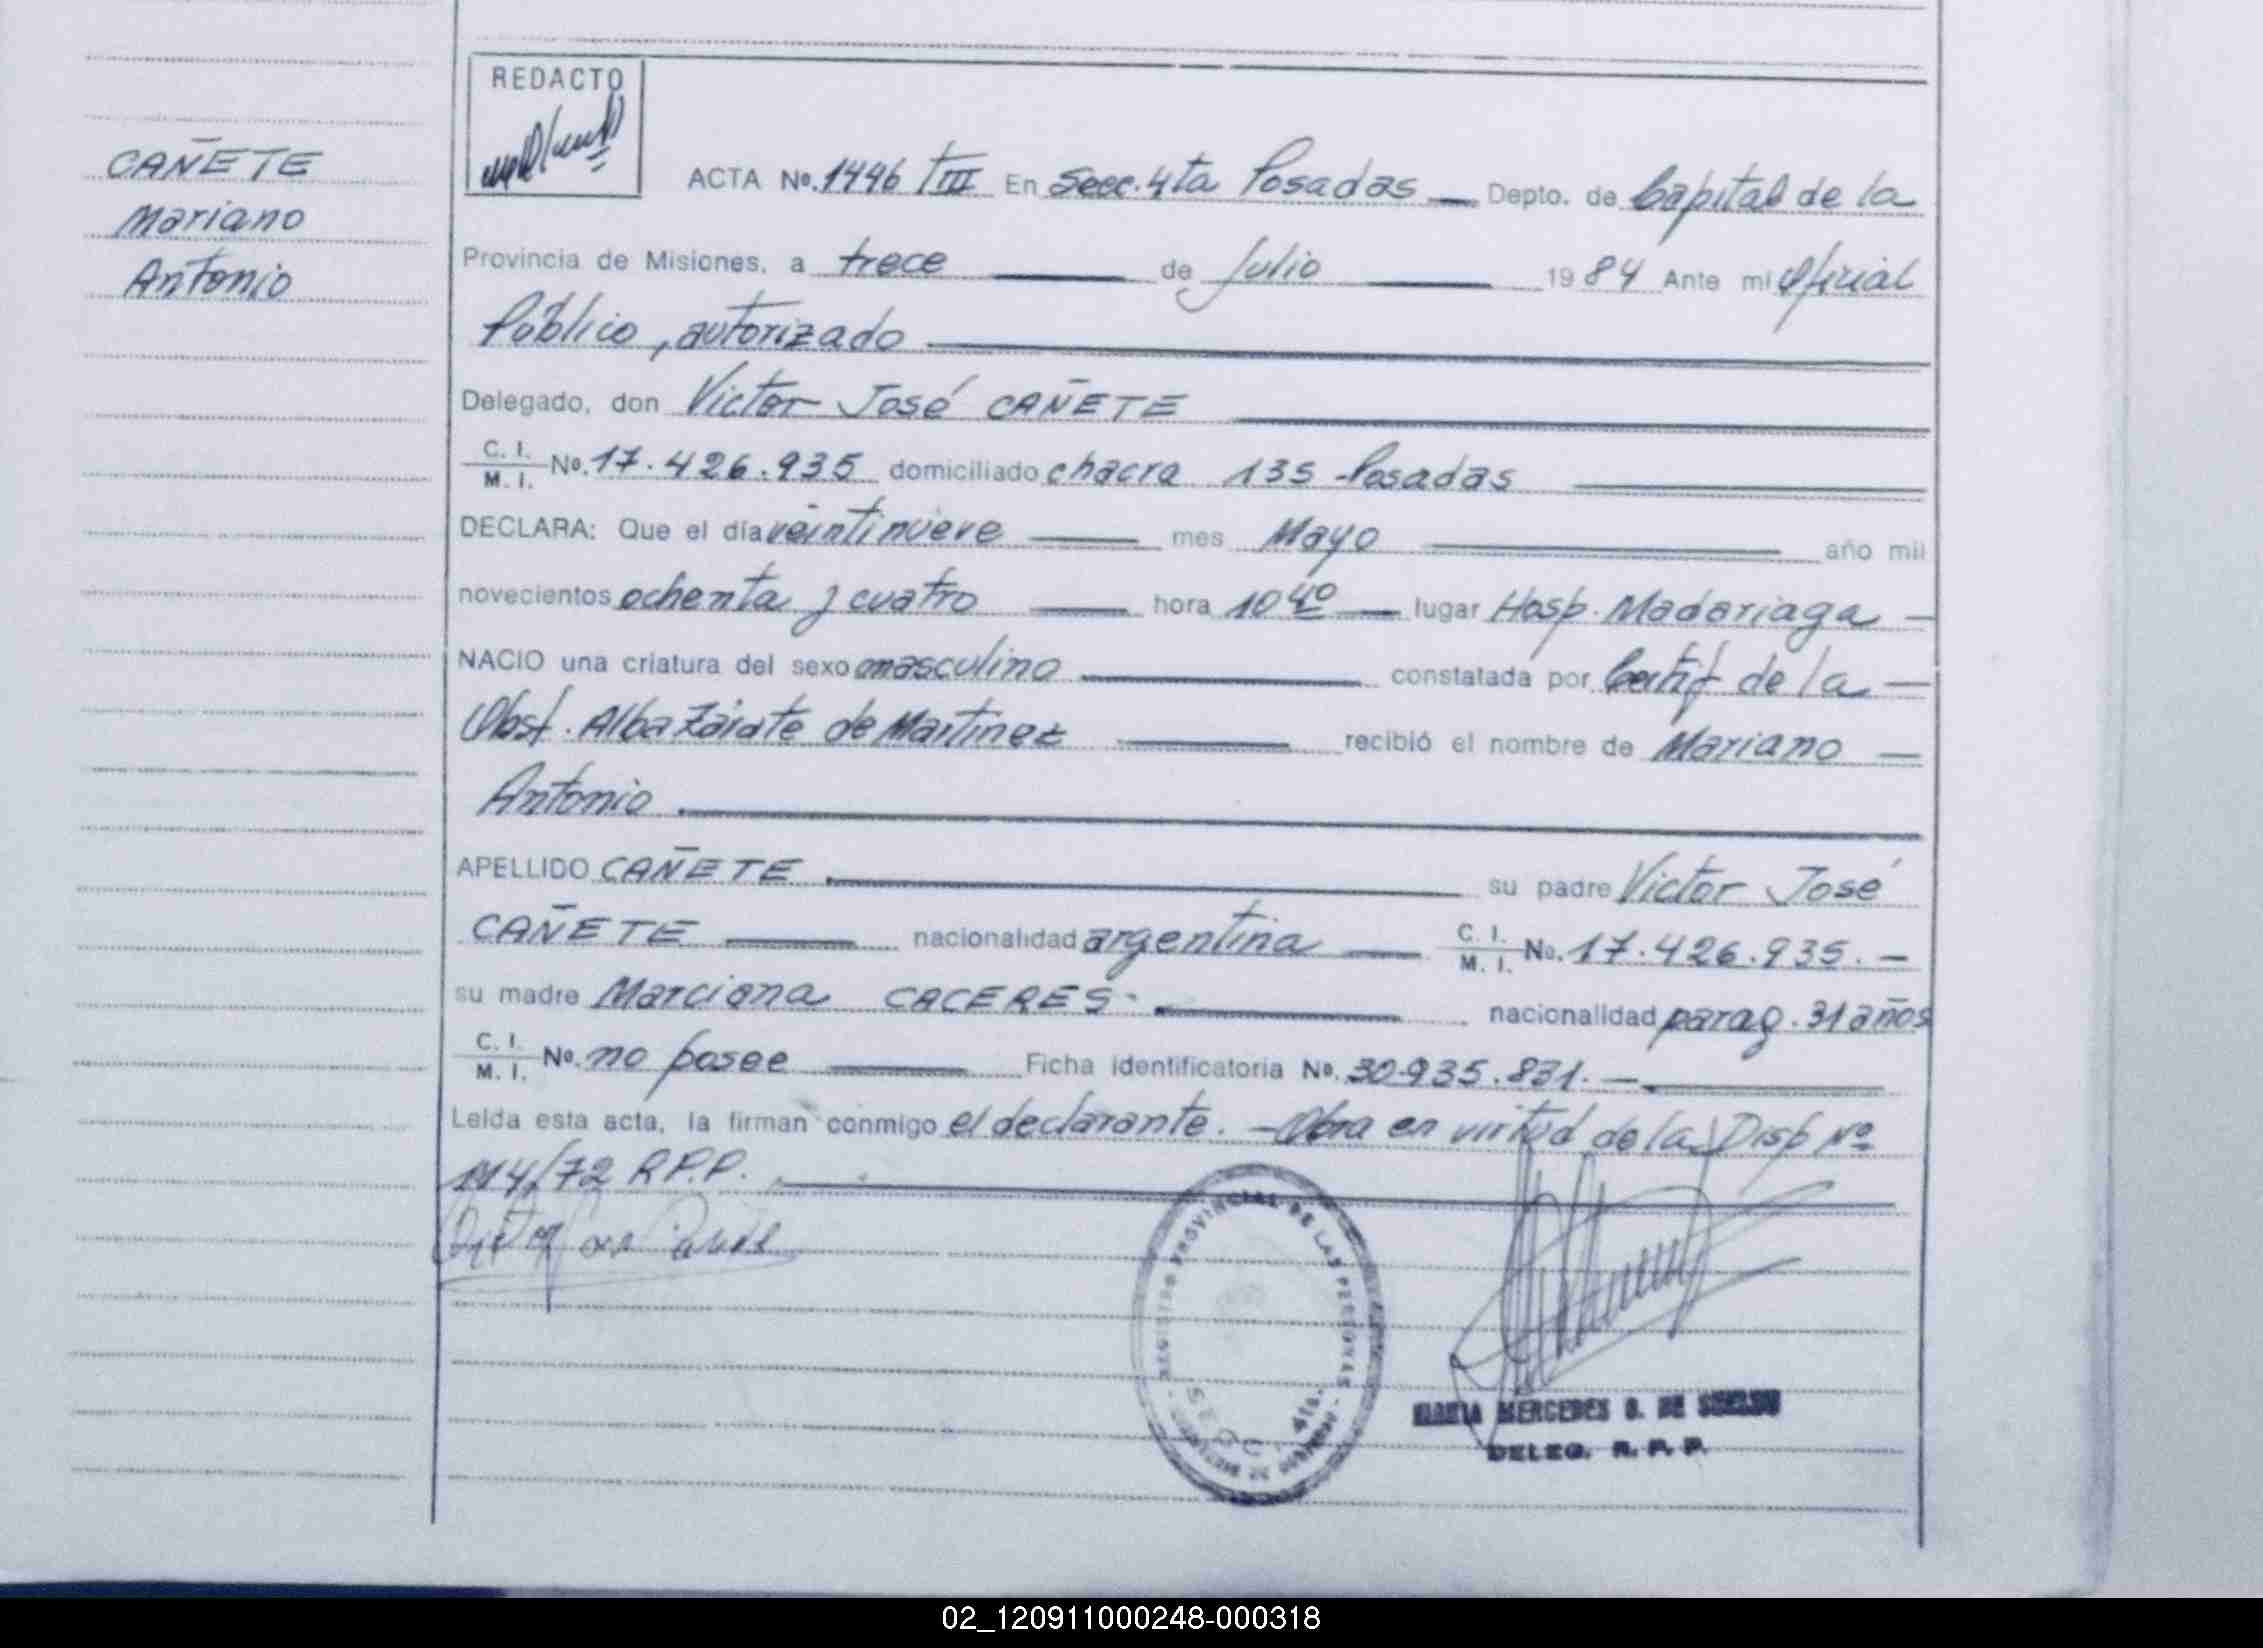 CAÑETE
Mariano
Antonio
REDACTO
ACTA No. 1446 TIII En Secc. 4ta Posadas Depto. de Capital de la
Provincia de Misiones, a trece de Julio 1984 Ante mi Oficial
Público, autorizado
Delegado, don Victor José CAÑETE
C. I.
M. I. No. 17.426.935 domiciliado chacra 135 - Posadas
DECLARA: Que el día veintinueve mes Mayo año mil
novecientos ochenta y cuatro hora 10 40 lugar Hosp. Madariaga -
NACIO una criatura del sexo masculino constatada por Certif de la -
Obst. Alba Zárate de Martinez recibió el nombre de Mariano -
Antonio
APELLIDO CAÑETE su padre Victor José
CAÑETE nacionalidad argentina C. I.
M. I. No. 17.426.935. -
su madre Marciana CACERES - nacionalidad parag. 31 años
C. I.
M. I. No. no posee Ficha identificatoria No. 30.935.831. -
Leída esta acta, la firman conmigo el declarante. - Obra en virtud de la Disp Nº
114/72 R.P.P.
REGISTRO PROVINCIAL DE LAS PERSONAS
SECC. 4ta.
MERCEDES G. DE
DELEG. R. P. P.
02_120911000248-000318